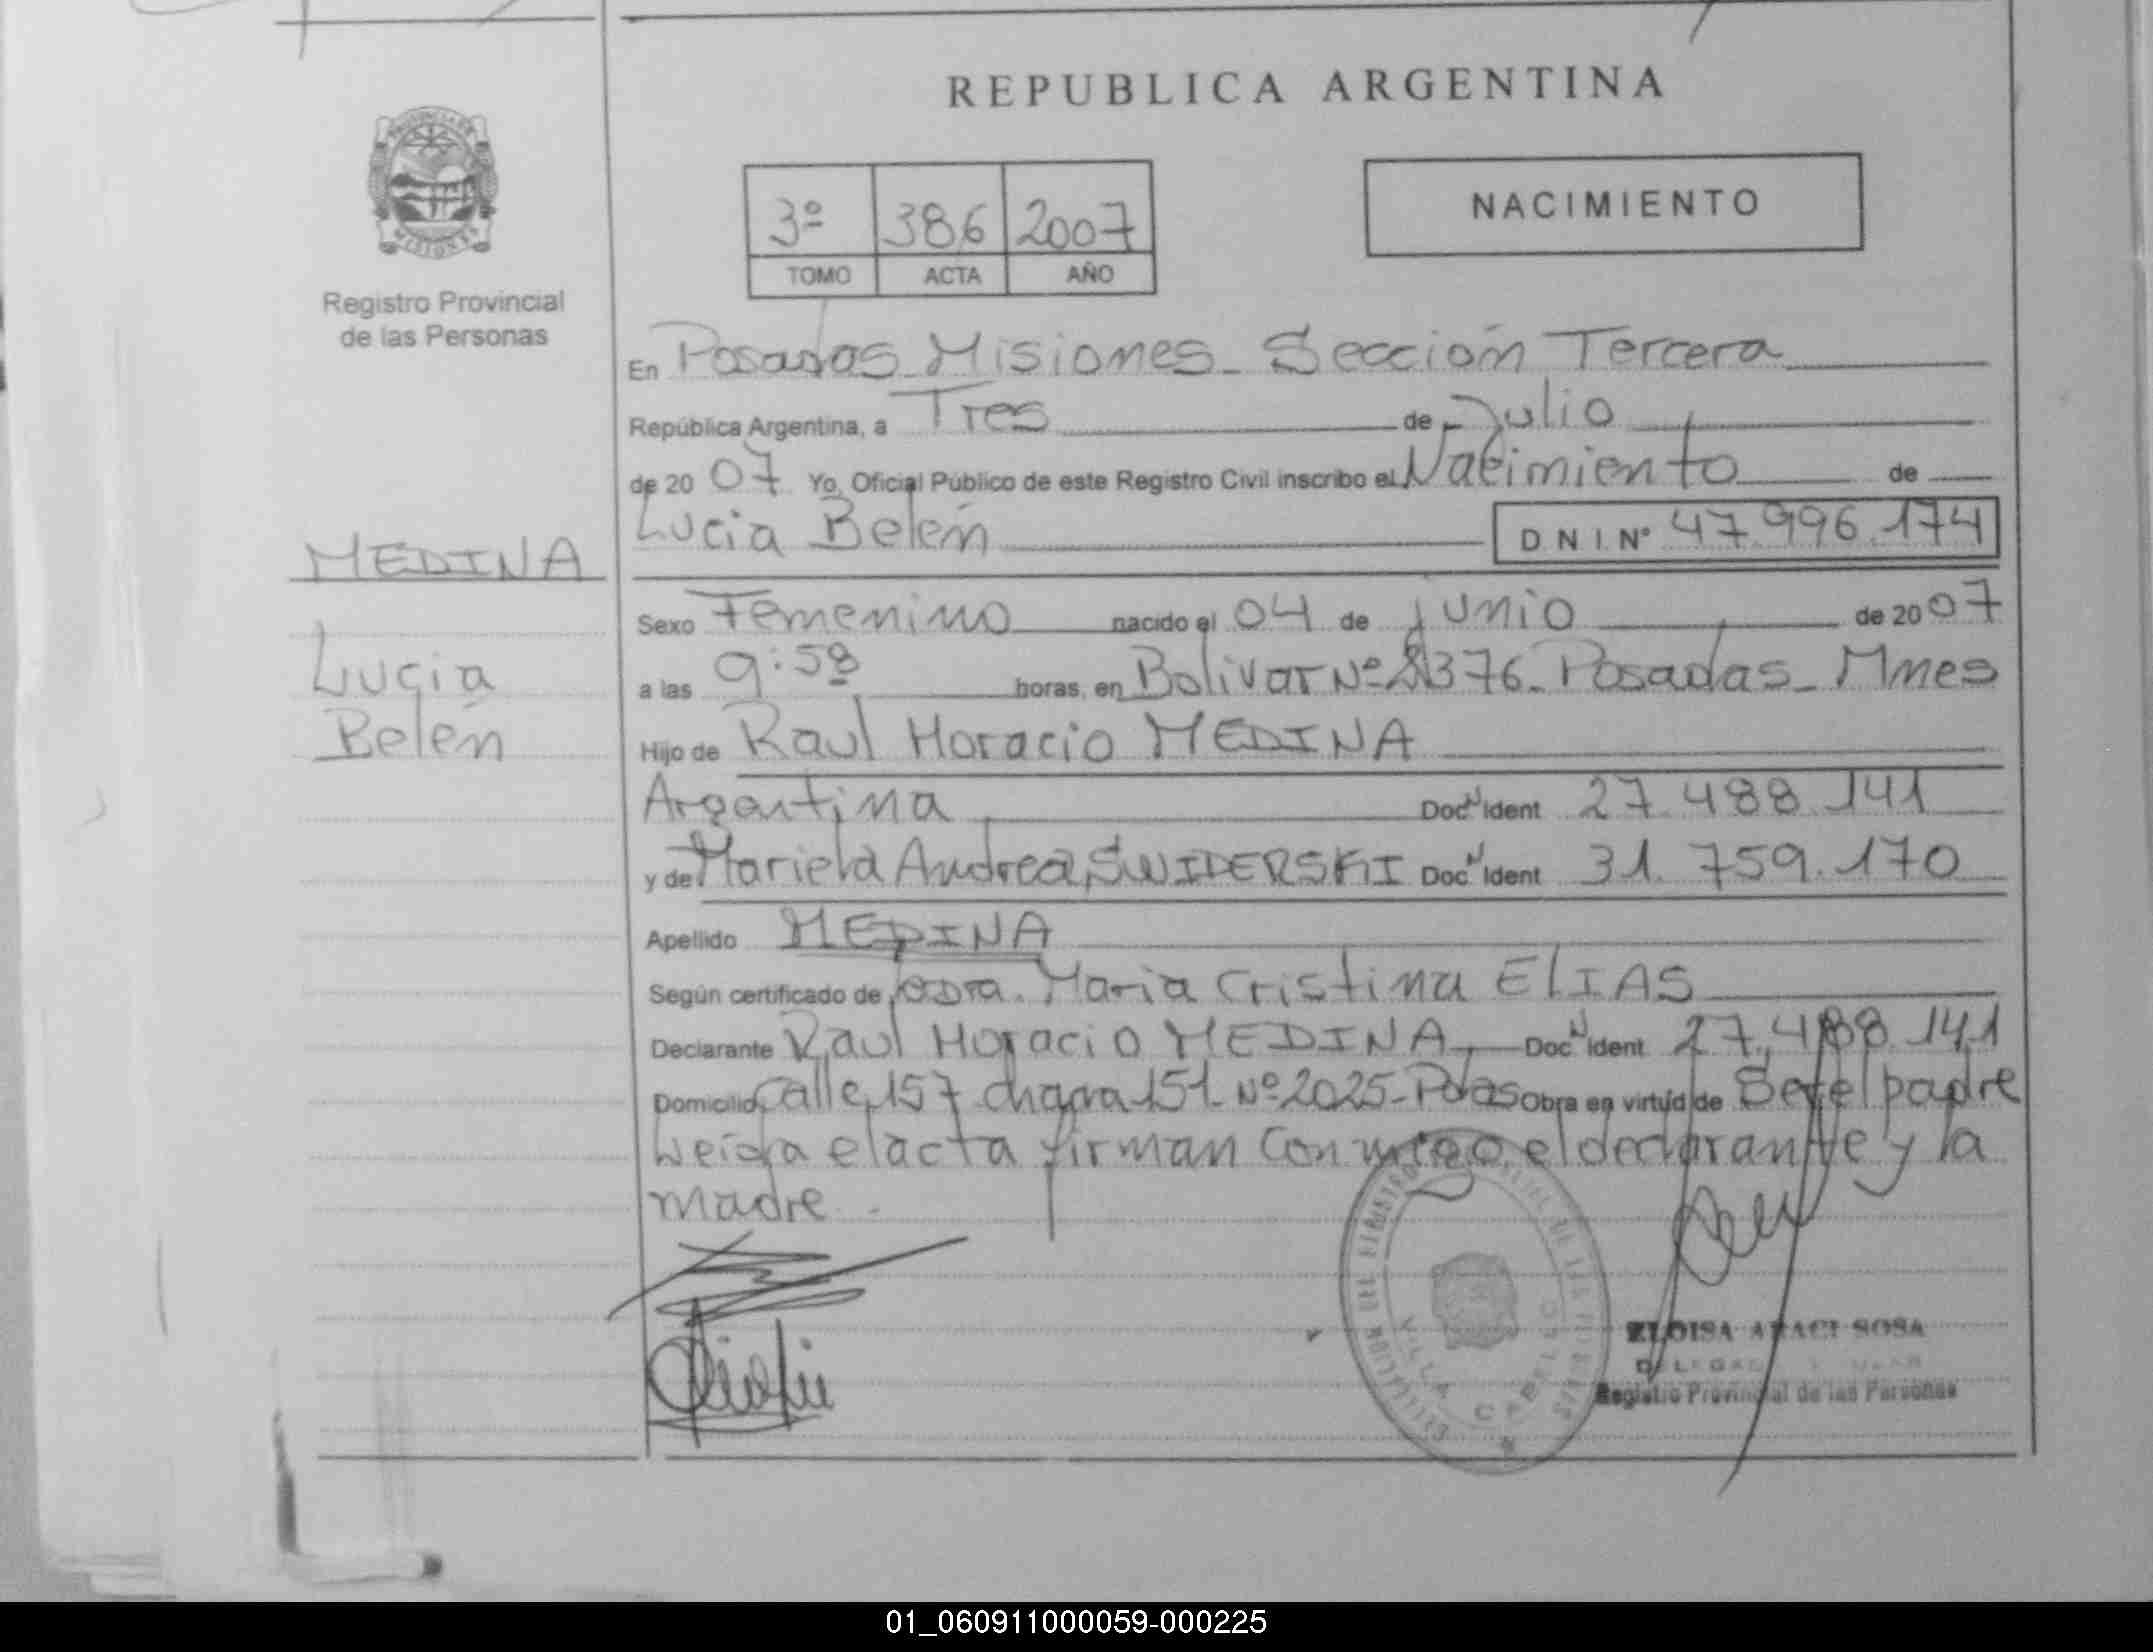 REPUBLICA ARGENTINA
PROVINCIA DE
MISIONES
Registro Provincial
de las Personas
NACIMIENTO
3º 386 2007
TOMO ACTA AÑO
En Posadas Misiones - Sección Tercera
República Argentina, a Tres de Julio
de 2007 Yo, Oficial Público de este Registro Civil inscribo el Nacimiento de
Lucia Belén D N I. Nº 47.996.174
MEDINA
Lucia
Belén
Sexo Femenino nacido el 04 de Junio de 2007
a las 9:58 horas, en Bolivar Nº 2376 - Posadas - Mnes
Hijo de Raul Horacio MEDINA
Argentina Doc N Ident 27.488.141
y de Mariela Andrea SWIDERSKI Doc N Ident 31.759.170
Apellido MEDINA
Según certificado de Dra. Maria Cristina ELIAS
Declarante Raul Horacio MEDINA Doc N Ident 27.488.141
Domicilio Calle 157 chacra 151 Nº 2025 - Pdas Obra en virtud de Ser el padre
Leida el acta firman conmigo el declarante y la
madre.
VILLA CABELLO
ELOISA ARACI SOSA
Registro Provincial de las Personas
01_060911000059-000225